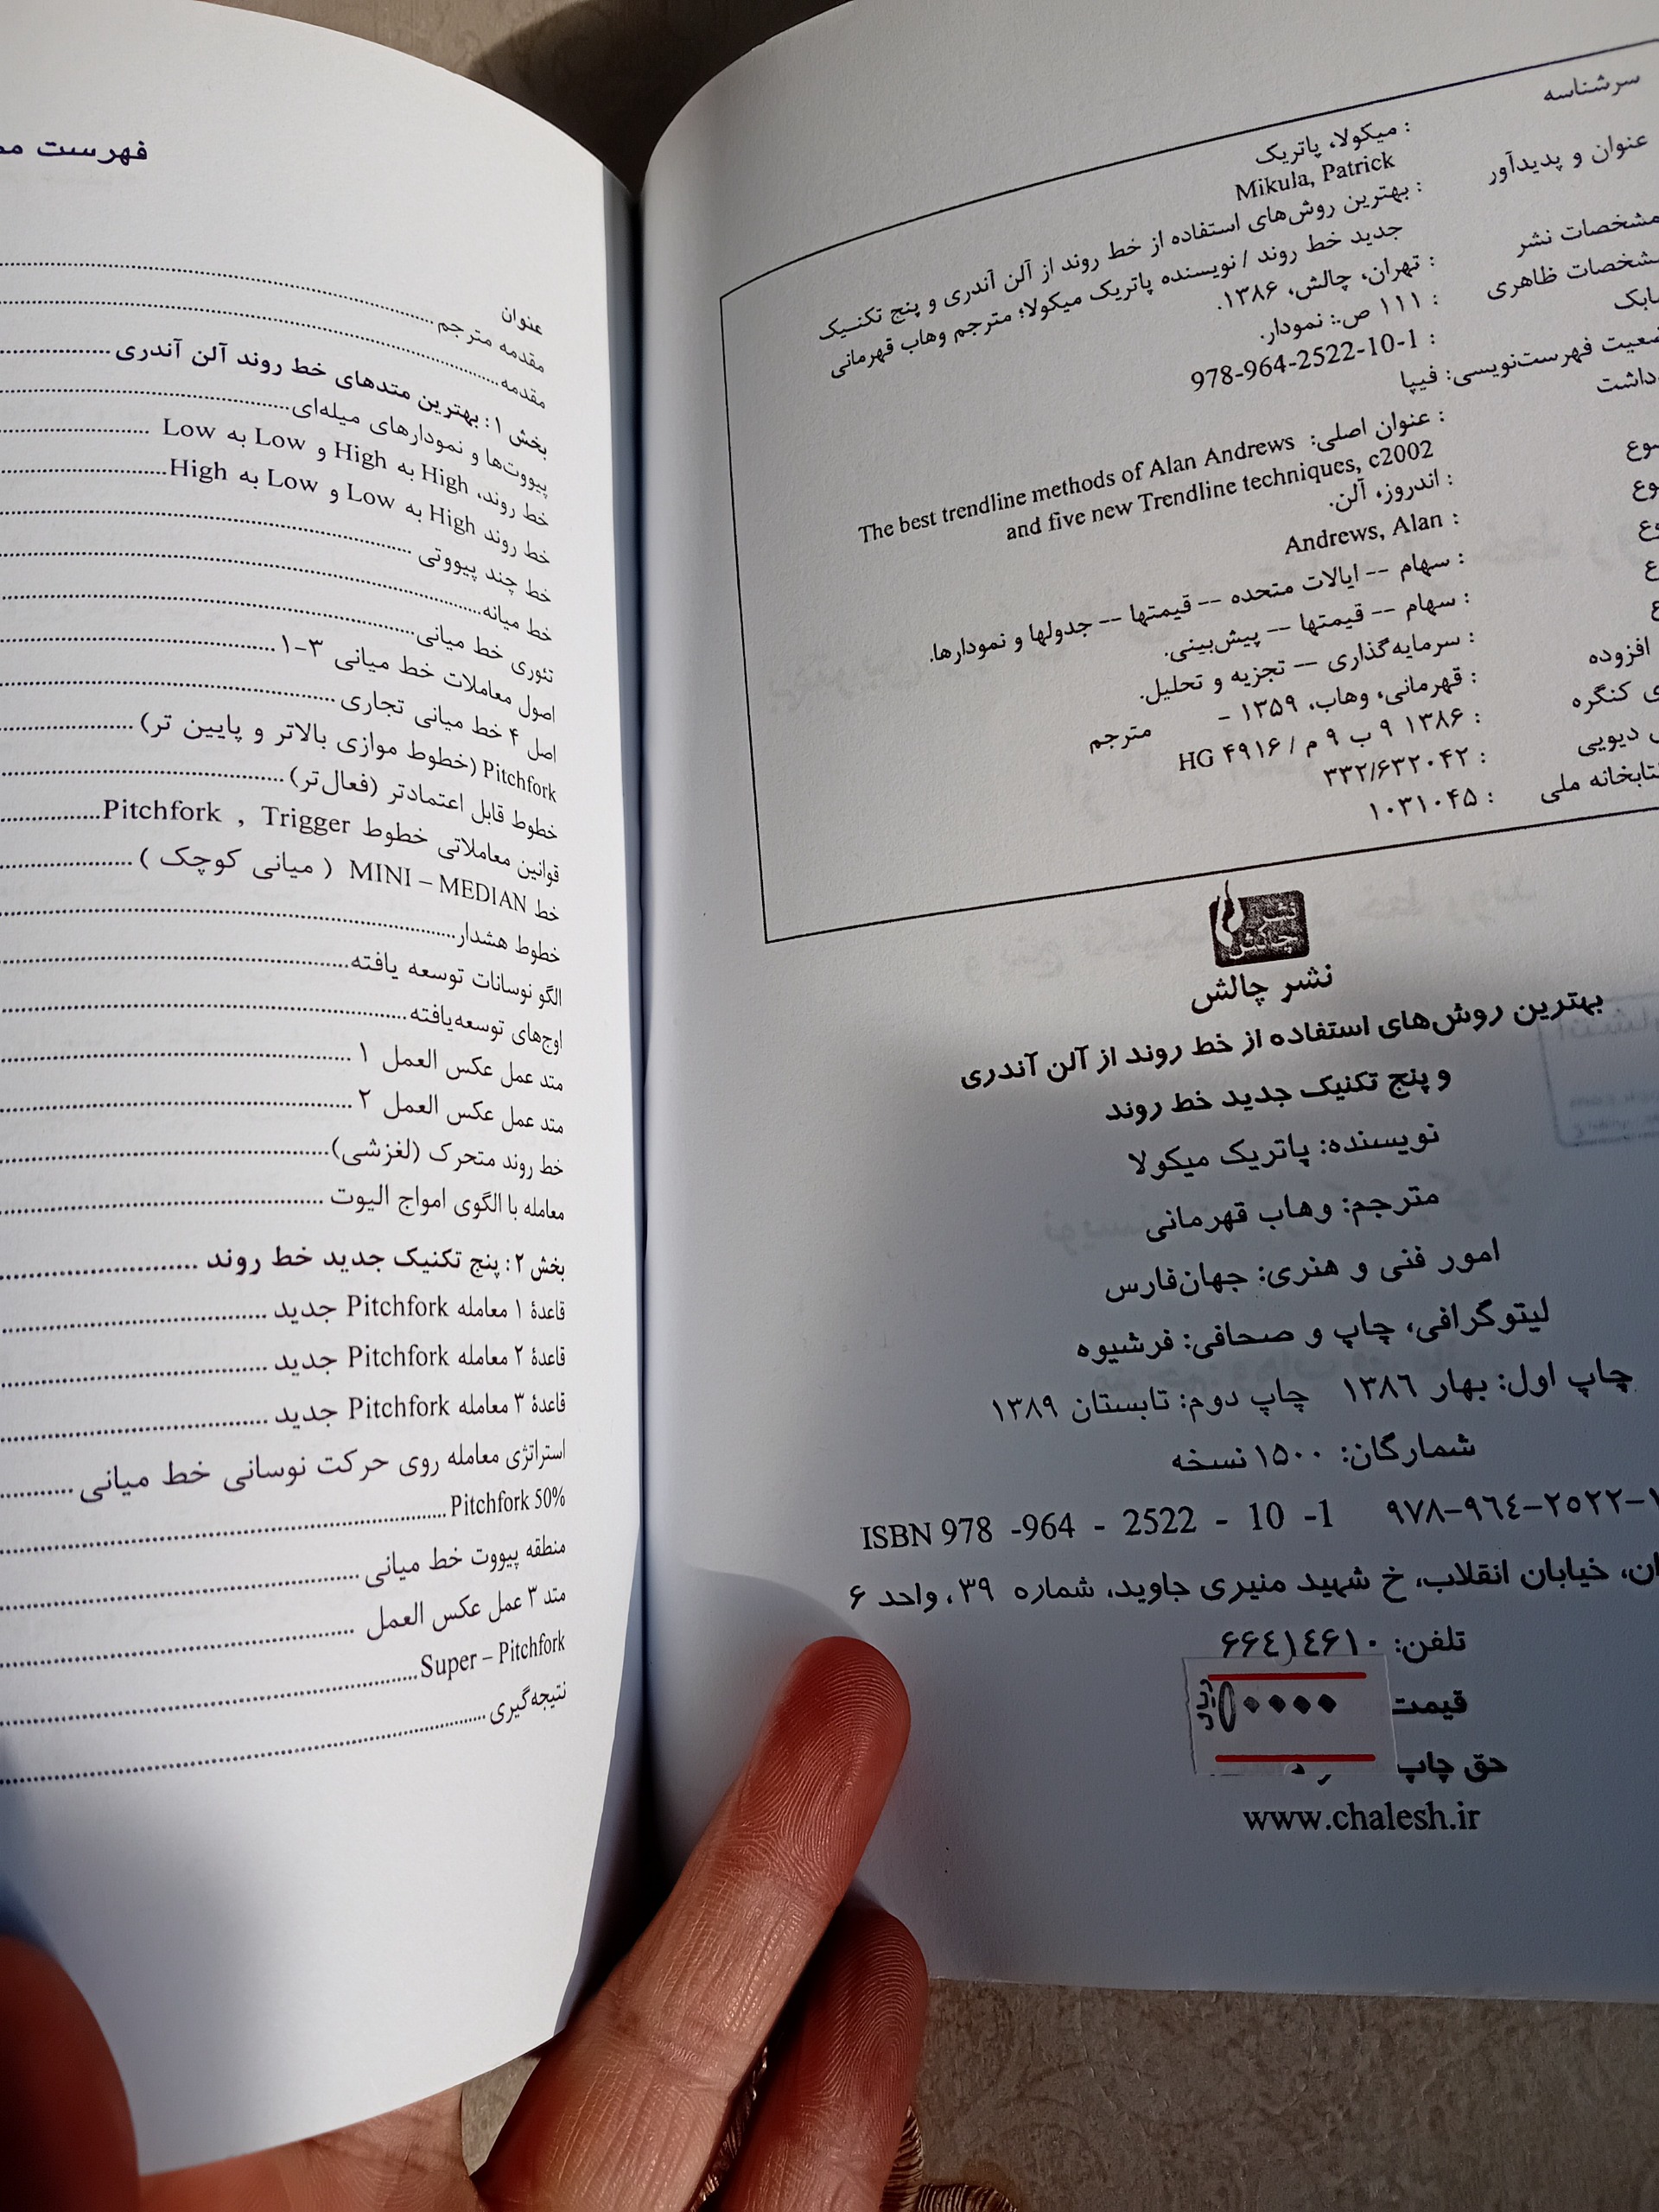 سرشناسه : میکولا، پاتریک
Mikula, Patrick
عنوان و پدیدآور : بهترین روش‌های استفاده از خط روند از آلن آندری و پنج تکنیک
جدید خط روند / نویسنده پاتریک میکولا؛ مترجم وهاب قهرمانی
مشخصات نشر : تهران، چالش، ۱۳۸۶.
مشخصات ظاهری : ۱۱۱ ص.: نمودار.
978-964-2522-10-1 :
فهرست‌نویسی: فیپا
عنوان اصلی: The best trendline methods of Alan Andrews :
and five new Trendline techniques, c2002
: اندروز، آلن.
Andrews, Alan :
: سهام -- ایالات متحده -- قیمتها -- جدولها و نمودارها.
: سهام -- قیمتها -- پیش‌بینی.
: سرمایه‌گذاری -- تجزیه و تحلیل.
افزوده : قهرمانی، وهاب، ۱۳۵۹ - مترجم
کنگره : ۱۳۸۶ ۹ ب ۹ م / HG ۴۹۱۶
دیویی : ۳۳۲/۶۳۲۰۴۲
ملی : ۱۰۳۱۰۴۵
نشر چالش
نشر چالش
بهترین روش‌های استفاده از خط روند از آلن آندری
و پنج تکنیک جدید خط روند
نویسنده: پاتریک میکولا
مترجم: وهاب قهرمانی
امور فنی و هنری: جهان‌فارس
لیتوگرافی، چاپ و صحافی: فرشیوه
چاپ اول: بهار ۱۳۸۶ چاپ دوم: تابستان ۱۳۸۹
شمارگان: ۱۵۰۰ نسخه
ISBN 978 -964 - 2522 - 10 -1 ۹۷۸-۹۶۴-۲۵۲۲-۱
خیابان انقلاب، خ شهید منیری جاوید، شماره ۳۹، واحد ۶
تلفن: ۶۶۴۱۴۶۱۰
قیمت ۵۰۰۰۰ ریال
حق چاپ
www.chalesh.ir
فهرست
عنوان
مقدمه مترجم
مقدمه
بخش ۱: بهترین متدهای خط روند آلن آندری
پیووت‌ها و نمودارهای میله‌ای
خط روند، High به High و Low به Low
خط روند High به Low و Low به High
خط چند پیووتی
خط میانه
تئوری خط میانی
اصول معاملات خط میانی ۳-۱
اصل ۴ خط میانی تجاری
Pitchfork (خطوط موازی بالاتر و پایین تر)
خطوط قابل اعتمادتر (فعال‌تر)
قوانین معاملاتی خطوط Pitchfork , Trigger
خط MINI – MEDIAN ( میانی کوچک )
خطوط هشدار
الگو نوسانات توسعه یافته
اوج‌های توسعه‌یافته
متد عمل عکس العمل ۱
متد عمل عکس العمل ۲
خط روند متحرک (لغزشی)
معامله با الگوی امواج الیوت
بخش ۲: پنج تکنیک جدید خط روند
قاعدهٔ ۱ معامله Pitchfork جدید
قاعدهٔ ۲ معامله Pitchfork جدید
قاعدهٔ ۳ معامله Pitchfork جدید
استراتژی معامله روی حرکت نوسانی خط میانی
Pitchfork 50%
منطقه پیووت خط میانی
متد ۳ عمل عکس العمل
Super – Pitchfork
نتیجه‌گیری